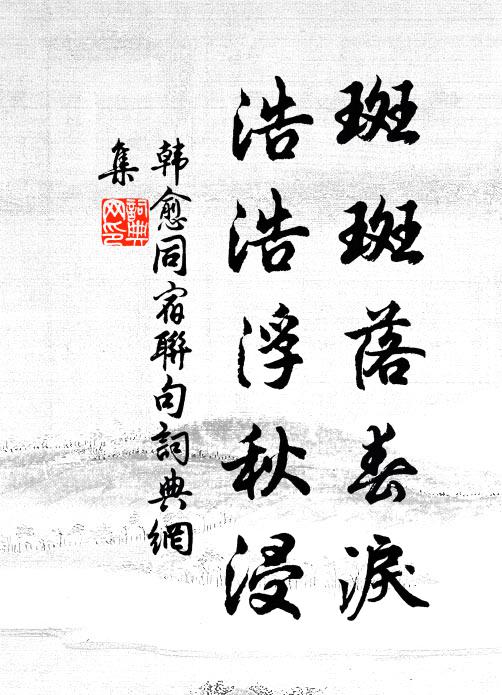 斑斑落春淚
浩浩浮秋浸
韩愈同宿聯句詞典網
集
詞典網印